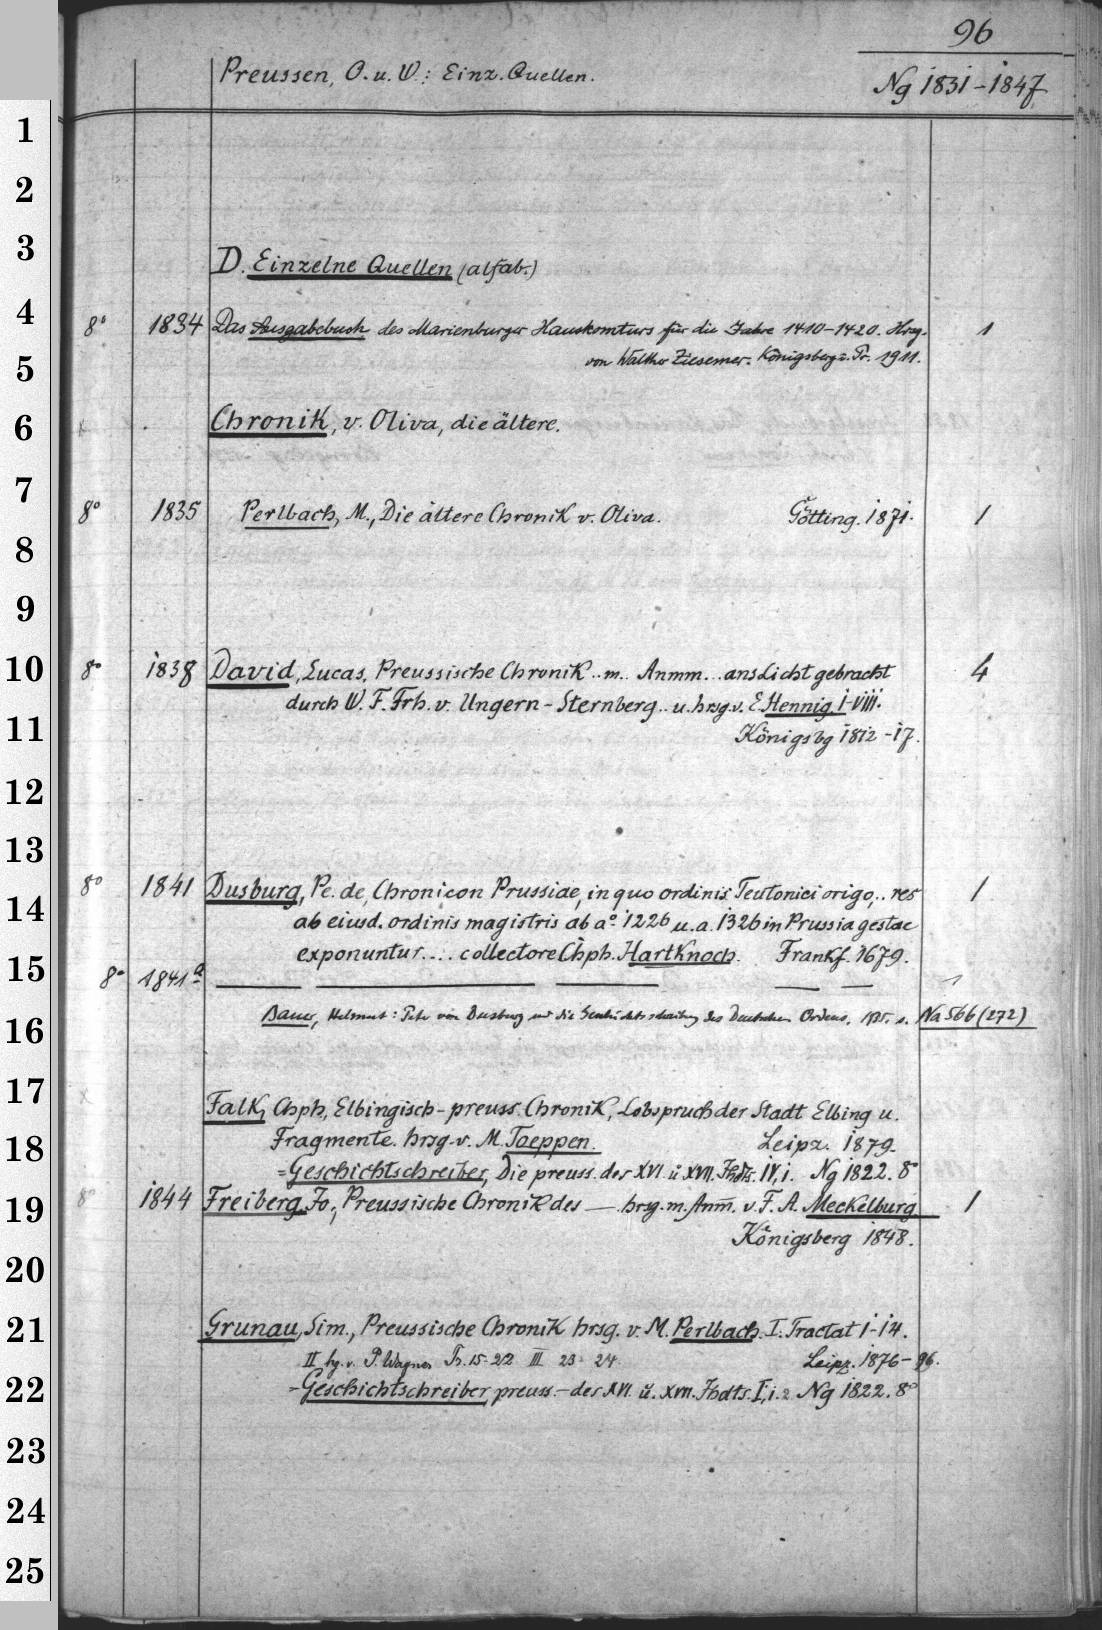 96
Preussen, O. u. W.: Einz. Quellen.
Ng 1831-1847
1
2
3
D. Einzelne Quellen (alfab.)
4
8° 1834 Das Ausgabebuch des Marienburger Hauskomturs für die Jahre 1410-1420. Hrsg. 1
5
von Walther Ziesemer. Königsberg i. Pr. 1911.
6
Chronik, v. Oliva, die ältere.
7
8° 1835 Perlbach, M., Die ältere Chronik v. Oliva. Götting. 1871. 1
8
9
10
8° 1838 David, Lucas, Preussische Chronik .. m. Anmm... ans Licht gebracht 4
durch W. F. Frh. v. Ungern-Sternberg.. u. hrsg. v. E. Hennig. I-VIII.
11
Königsbg 1812-17.
12
13
8° 1841 Dusburg, Pe. de, Chronicon Prussiae, in quo ordinis Teutonici origo,.. res 1
14
ab eiusd. ordinis magistris ab a° 1226 u. a. 1326 in Prussia gestae
exponuntur.... collectore Chph. Hartknoch. Frankf. 1679.
15
8° 1841a — — — — — 1
16
Bauer, Helmut: Peter von Dusburg und die Geschichtsschreibung des Deutschen Ordens. 1935. s. Na 566 (272)
17
Falk, Chph., Elbingisch-preuss. Chronik, Lobspruch der Stadt Elbing u.
18
Fragmente. hrsg. v. M. Toeppen. Leipz. 1879.
=Geschichtschreiber, Die preuss. des XVI. u. XVII. Jhdts. IV,1. Ng 1822. 8°
19
8° 1844 Freiberg, Jo., Preussische Chronik des — hrsg. m. Anm. v. F. A. Meckelburg 1
Königsberg 1848.
20
21
Grunau, Sim., Preussische Chronik hrsg. v. M. Perlbach. I. Tractat 1-14.
II hg. v. P. Wagner Tr. 15-22 III 23-24. Leipz. 1876-96.
22
=Geschichtschreiber, preuss. – des XVI. u. XVII. Jhdts. I, 1. 2 Ng 1822. 8°
23
24
25